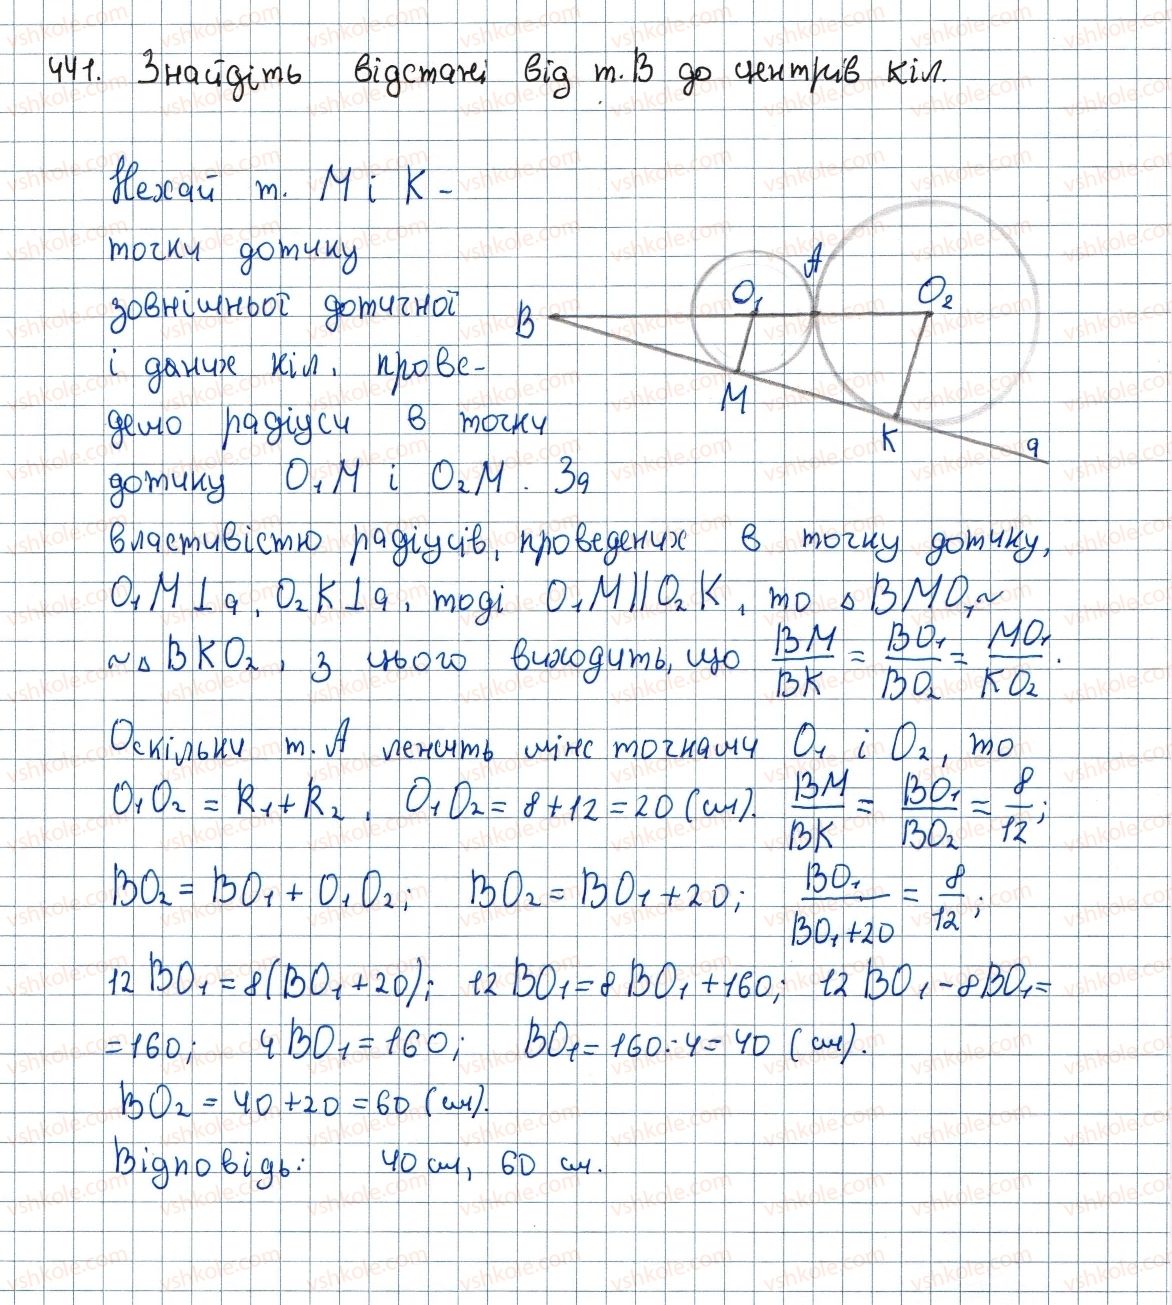 441. Знайдіть відстані від т. В до центрів кіл.
Нехай т. М і К -
точки дотику
зовнішньої дотичної
і даних кіл. прове-
демо радіуси в точки
дотику O₁M і O₂M. За
властивістю радіусів, проведених в точку дотику,
O₁M⊥a, O₂K⊥a, тоді O₁M||O₂K, то △BMO₁~
~△BKO₂, з цього виходить, що BM/BK = BO₁/BO₂ = MO₁/KO₂.
Оскільки т. А лежить між точками O₁ і O₂, то
O₁O₂ = R₁+R₂, O₁O₂ = 8+12 = 20 (см). BM/BK = BO₁/BO₂ = 8/12;
BO₂ = BO₁ + O₁O₂; BO₂ = BO₁ + 20; BO₁/BO₁+20 = 8/12;
12 BO₁ = 8(BO₁+20); 12 BO₁ = 8 BO₁ + 160; 12 BO₁ - 8BO₁ =
= 160; 4 BO₁ = 160; BO₁ = 160:4 = 40 (см).
BO₂ = 40+20 = 60 (см).
Відповідь: 40 см, 60 см.
B
O₁
A
O₂
M
K
a
vshkole.com